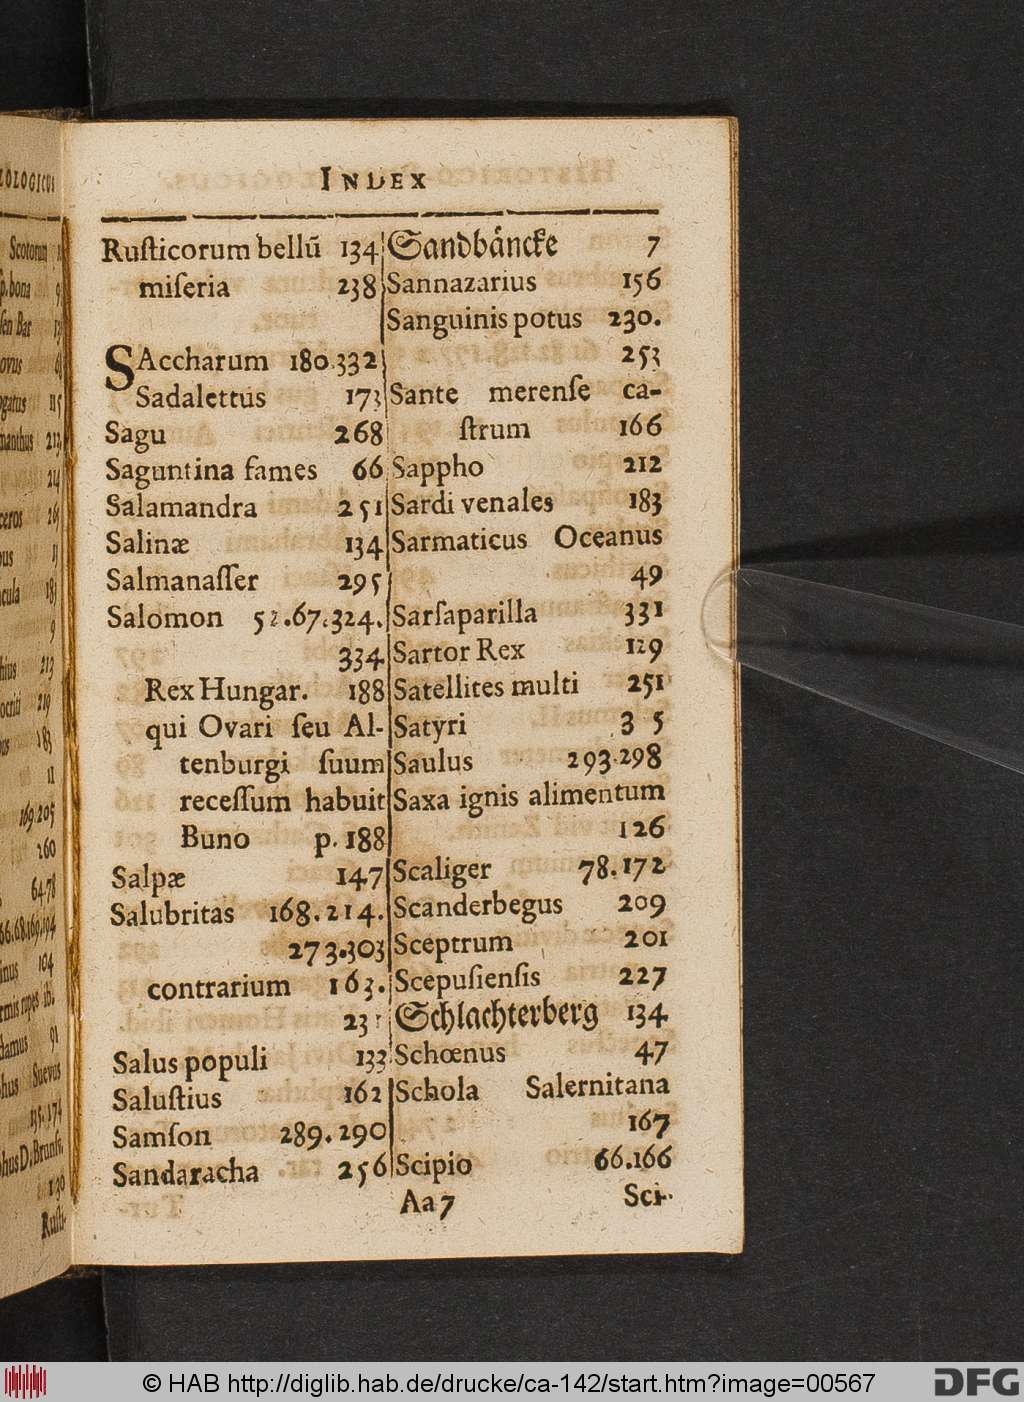 INDEX
Ruſticorum bellũ 134
miſeria 238
SAccharum 180.332
Sadalettus 173
Sagu 268
Saguntina fames 66
Salamandra 251
Salinæ 134
Salmanaſſer 295
Salomon 52.67.324.
334
Rex Hungar. 188
qui Ovari ſeu Al-
tenburgi ſuum
receſſum habuit
Buno p. 188
Salpæ 147
Salubritas 168.214.
273.303
contrarium 163.
231
Salus populi 133
Saluſtius 162
Samſon 289.290
Sandaracha 256
Sandbäncke 7
Sannazarius 156
Sanguinis potus 230.
253
Sante merenſe ca-
ſtrum 166
Sappho 212
Sardi venales 183
Sarmaticus Oceanus
49
Sarſaparilla 331
Sartor Rex 129
Satellites multi 251
Satyri 3 5
Saulus 293.298
Saxa ignis alimentum
126
Scaliger 78.172
Scanderbegus 209
Sceptrum 201
Scepuſienſis 227
Schlachterberg 134
Schœnus 47
Schola Salernitana
167
Scipio 66.166
Aa 7 Sci-
© HAB http://diglib.hab.de/drucke/ca-142/start.htm?image=00567
DFG